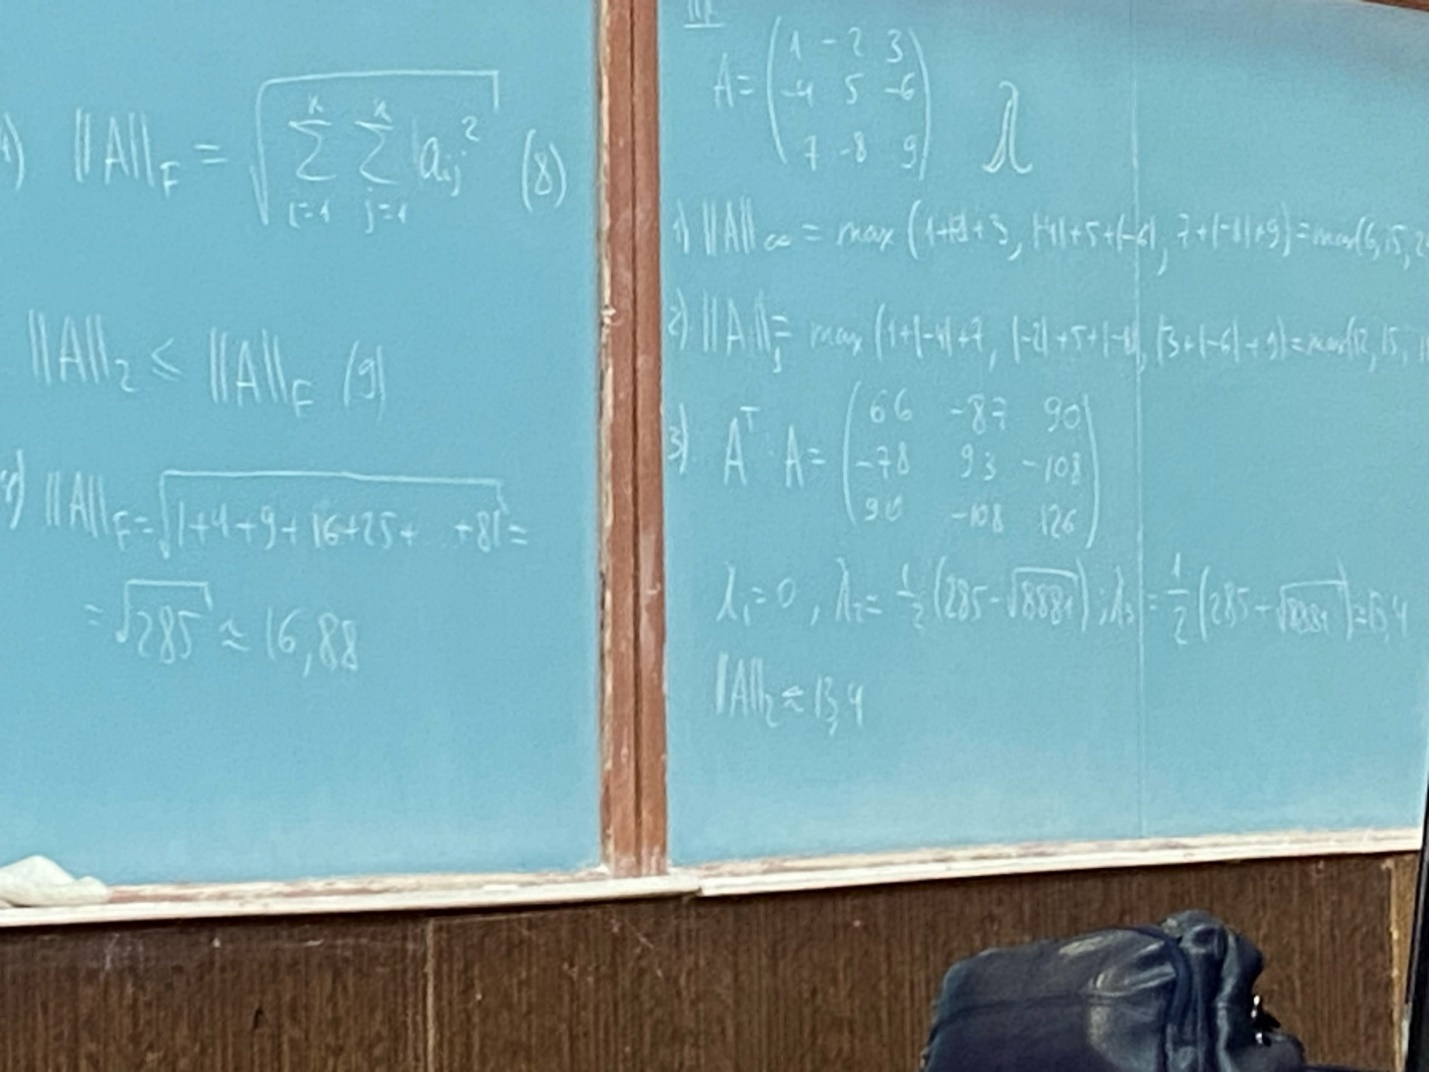 4) ||A||_F = √(∑_{i=1}^{n} ∑_{j=1}^{n} |a_{ij}|^2) (8)
||A||_2 ≤ ||A||_F (9)
4) ||A||_F = √(1+4+9+16+25+...+81) =
= √285 ≈ 16,88
A = (1 -2 3
-4 5 -6
7 -8 9) λ
1) ||A||_∞ = max (1+|-2|+3, |-4|+5+|-6|, 7+|-8|+9) = max(6, 15, 2
2) ||A||_1 = max (1+|-4|+7, |-2|+5+|-8|, |3+|-6|+9) = max(12, 15, 1
3) A^T A = (66 -87 90
-78 93 -108
90 -108 126)
λ_1 = 0, λ_2 = 1/2 (285-√8881); λ_3 = 1/2 (285+√8881) ≈ 13,4
||A||_2 ≈ 13,4